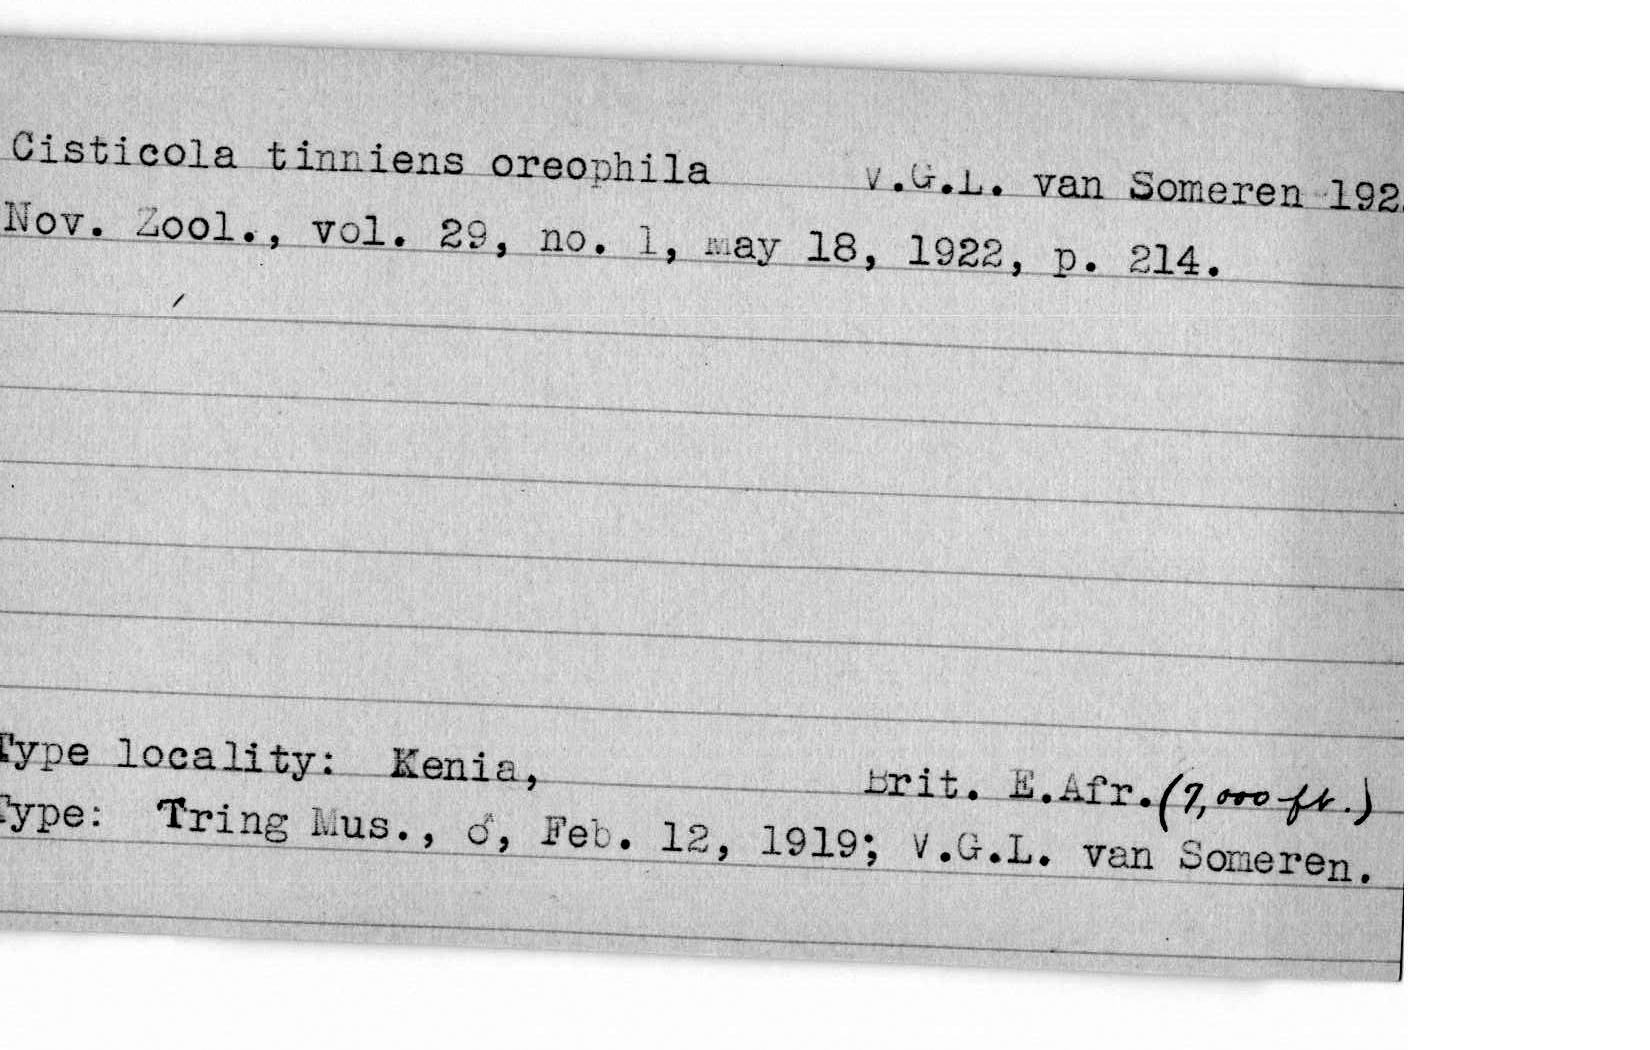 Cisticola tinniens oreophila V.G.L. van Someren 192
Nov. Zool., vol. 29, no. 1, May 18, 1922, p. 214.
Type locality: Kenia, Brit. E.Afr. (7,000 ft.)
Type: Tring Mus., ♂, Feb. 12, 1919; V.G.L. van Someren.